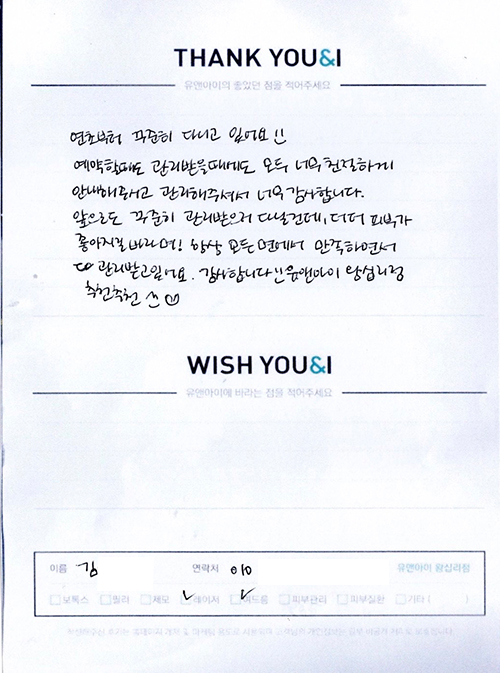 THANK YOU&I
유앤아이의 좋았던 점을 적어주세요
연초부터 꾸준히 다니고 있어요!!
예약할때도 관리받을때에도 모두 너무 친절하게
안내해주시고 관리해주셔서 너무 감사합니다.
앞으로도 꾸준히 관리받으러 다닐건데, 더더 피부가
좋아지길 바라며! 항상 모든 면에서 만족하면서
관리받고있어요. 감사합니다!! 유앤아이 왕십리점
추천추천 ^^
WISH YOU&I
유앤아이에 바라는 점을 적어주세요
이름 김 연락처 010 유앤아이 왕십리점
보톡스 필러 제모 레이저 여드름 피부관리 피부질환 기타 ( )